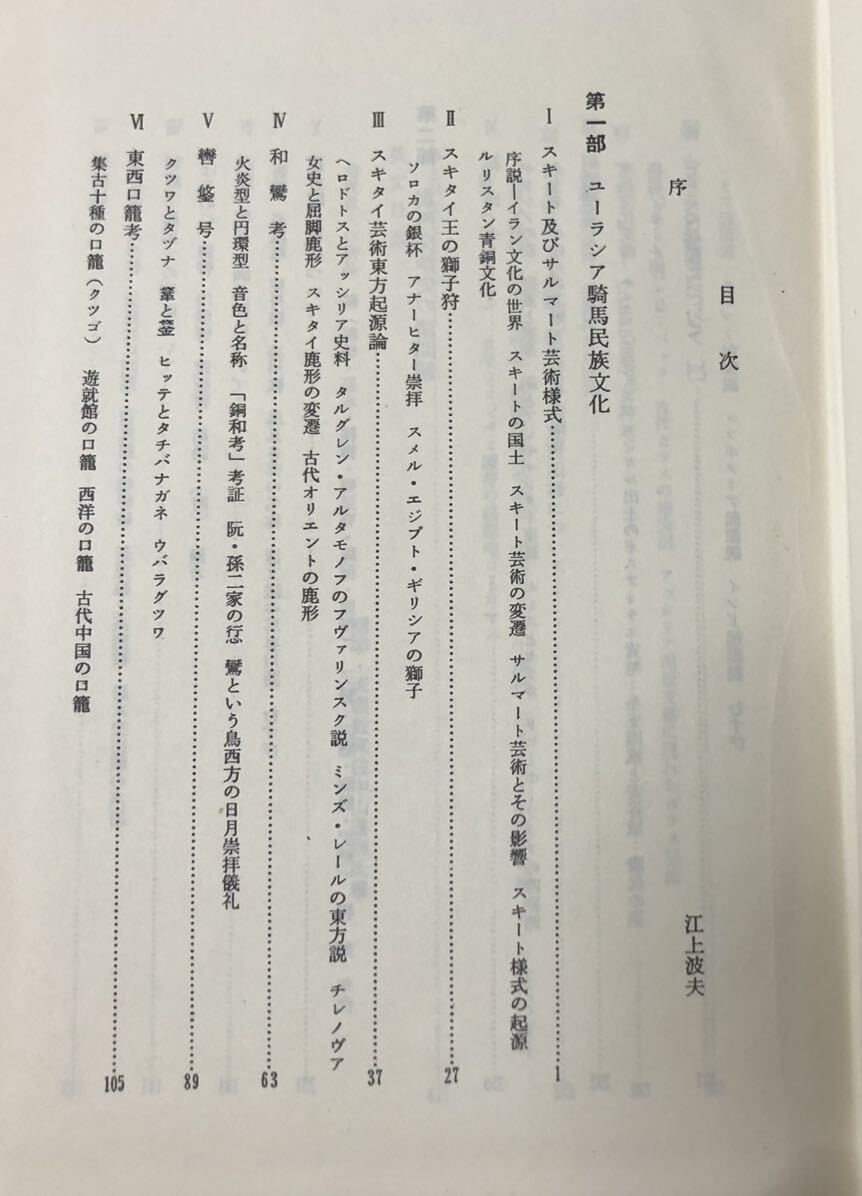 目次
序
江上波夫
第一部 ユーラシア騎馬民族文化
Ⅰ スキート及びサルマート芸術様式……1
序説―イラン文化の世界 スキートの国土 スキート芸術の変遷 サルマート芸術とその影響 スキート様式の起源
ルリスタン青銅文化
Ⅱ スキタイ王の獅子狩……27
ソロカの銀杯 アナーヒター崇拝 スメル・エジプト・ギリシアの獅子
Ⅲ スキタイ芸術東方起源論……37
ヘロドトスとアッシリア史料 タルグレン・アルタモノフのフヴァリンスク説 ミンズ・レールの東方説 チレノヴァ
女史と屈脚鹿形 スキタイ鹿形の変遷 古代オリエントの鹿形
Ⅳ 和鸞考……63
火炎型と円環型 音色と名称 「銅和考」考証 阮・孫二家の愆 鸞という鳥西方の日月崇拝儀礼
Ⅴ 轡鋚号……89
クツワとタヅナ 鞗と鋚 ヒッテとタチバナガネ ウバラグツワ
Ⅵ 東西口籠考……105
集古十種の口籠(クツゴ) 遊就館の口籠 西洋の口籠 古代中国の口籠